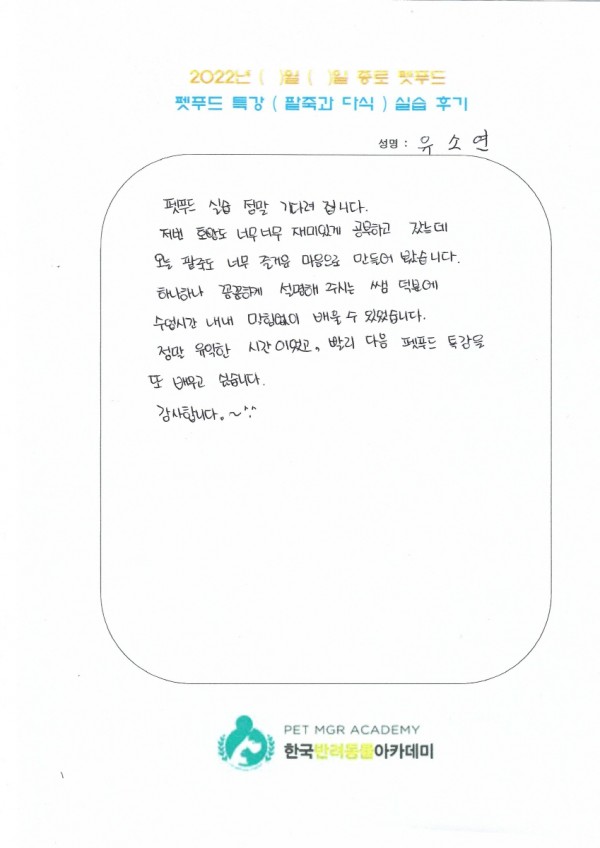 2022년 ( )월 ( )일 종로 펫푸드
펫푸드 특강 ( 팥죽과 다식 ) 실습 후기
성명 : 유소연
펫푸드 실습 정말 기다려 집니다.
저번 호안도 너무너무 재미있게 공육하고 갔는데
오늘 팥죽도 너무 즐거운 마음으로 만들어 봤습니다.
하나하나 꼼꼼하게 설명해 주시는 쌤 덕분에
수업시간 내내 막힘없이 배울 수 있었습니다.
정말 유익한 시간이었고, 빨리 다음 펫푸드 특강을
또 배우고 싶습니다.
감사합니다.~^^
PET MGR ACADEMY
한국반려동물아카데미